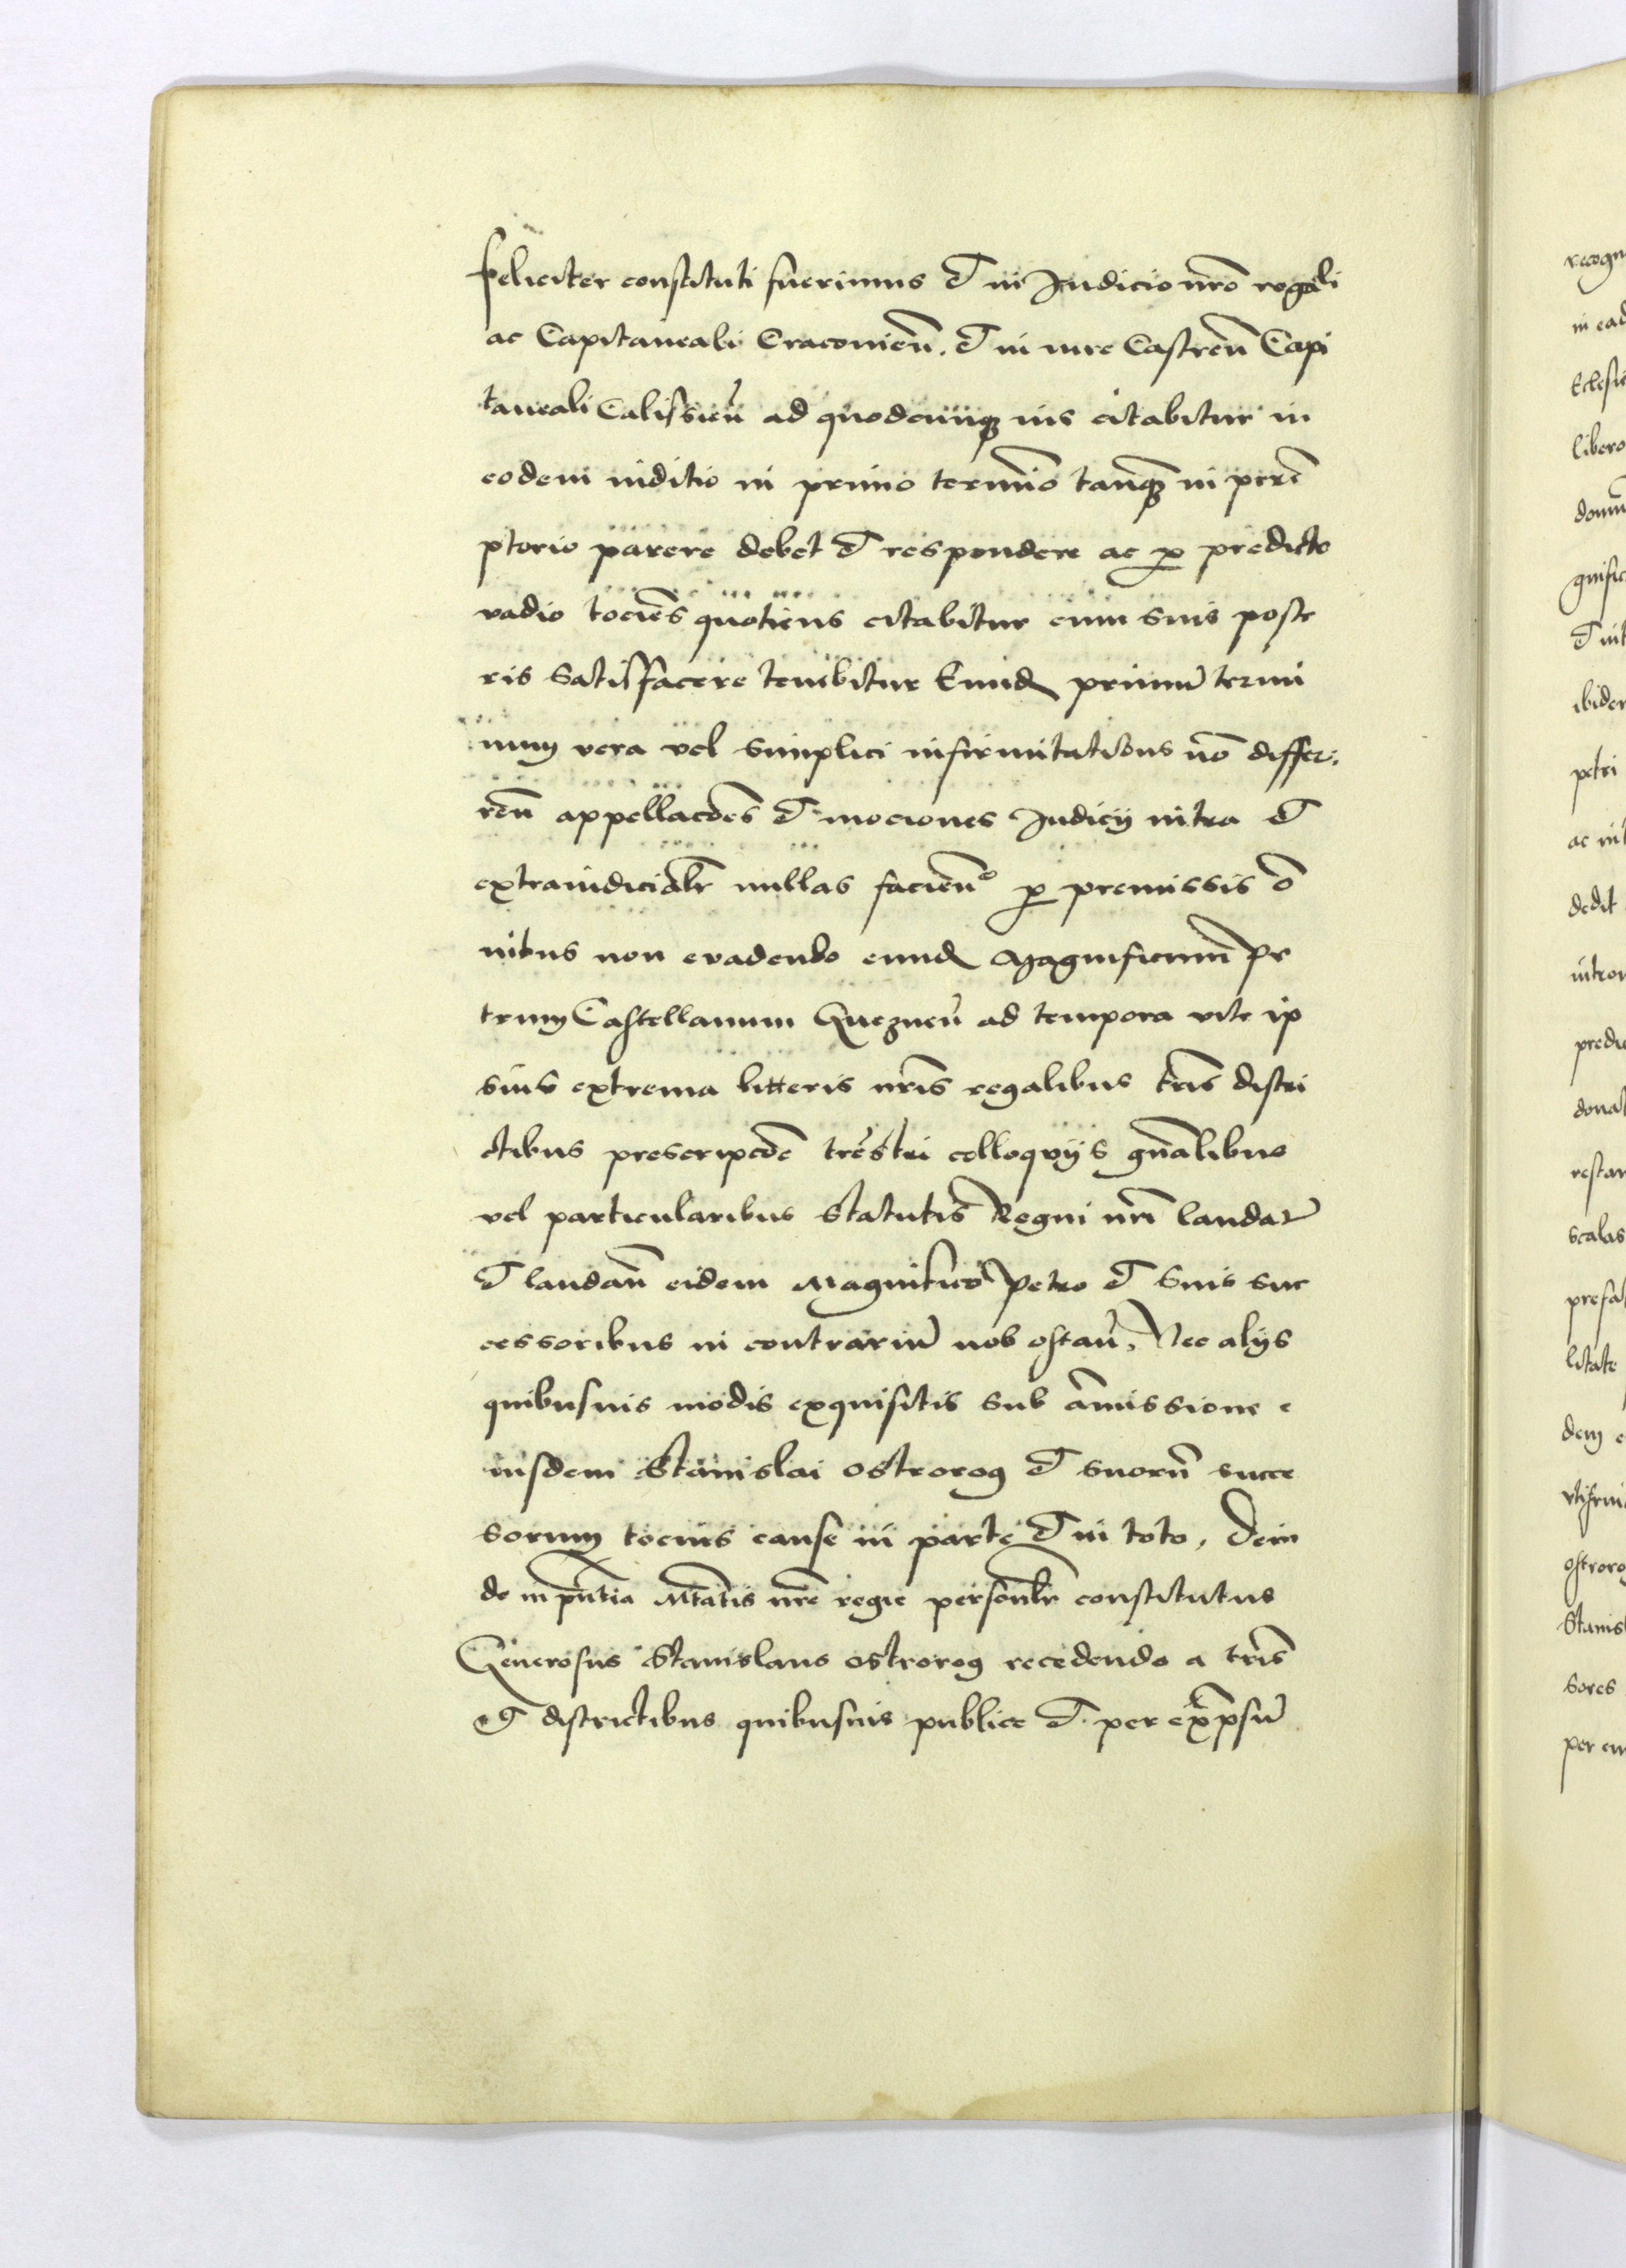 feliciter constituti fuerimus et in Judicio nr̃o regali
ac Capitaneali Cracovieñ. et in iure Castreñ Capi
taneali Calissieñ ad quodcunqꝫ ius citabitur in
eodem iuditio in primo termĩo tanqꝫ in perẽ
ptorio parere debet et respondere ac ꝓ predicto
vadio tociẽs quotiens citabitur cum suis poste
ris satisfacere tenebitur Eundẽ primũ termi
num vera vel simplici infirmitatibus nõ differ.
reñ appellacões et mociones Judicij intra et
extraiudicialr̃ nullas facieñ ꝓ premissis õ
nibus non evadendo eundẽ Magnificum̃ Pe
trum Castellanum Gnezneñ ad tempora vite ip
sius extrema litteris nr̃is regalibus tr̃is distri
ctibus prescripcõe trr̃estri colloquijs gñalibus
vel particularibus statutis Regni nr̃i laudat̃
et laudañ eidem Magnifico Petro et suis suc
cessoribus in contrariũ nob ostañ. Nec alijs
quibusvis modis exquisitis sub ãmissione e
iusdem Stanislai ostrorog et suorũ succe
sorum tocius cause in parte et in toto, Dein
de in pñtia Mtãtis nr̃e regie personlr̃ constitutus
Generosus Stanislaus ostrorog recedendo a tr̃is
et districtibus quibusvis publice et per exp̃sũ
recogn
in ead
Eclesie
libero
domin
gnific
et int
ibidem
petri
ac int
dedit
predic
donat
restar
scalas
prefat
litate
dem e
ostrorog
Stanisl
sores
per eu